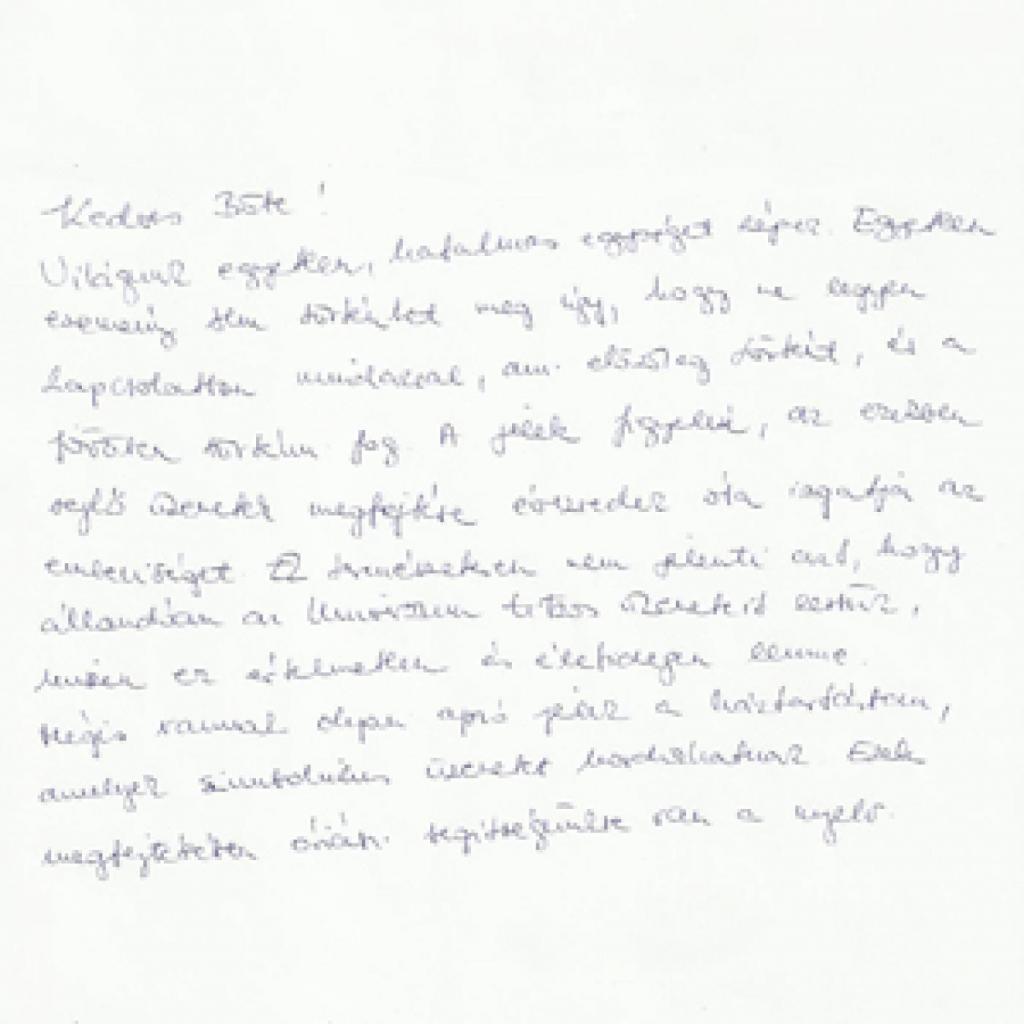 Kedves Böte!
Világunk egyetlen, hatalmas egységet képez. Egyetlen
esemény sem történhet meg úgy, hogy ne legyen
kapcsolatban mindazzal, ami előzőleg történt, és a
jövőben történni fog. A jelek figyelése, az ezekben
rejlő üzenetek megfejtése évezredek óta izgatja az
emberiséget. Ez természetesen nem jelenti azt, hogy
állandóan az Univerzum titkos üzeneteit lessük,
hiszen ez értelmetlen és életidegen lenne.
Mégis vannak olyan apró jelek a háztartásban,
amelyek szimbolikus üzenetet hordozhatnak. Ezek
megfejtésében óriási segítségünkre van a nyelv.